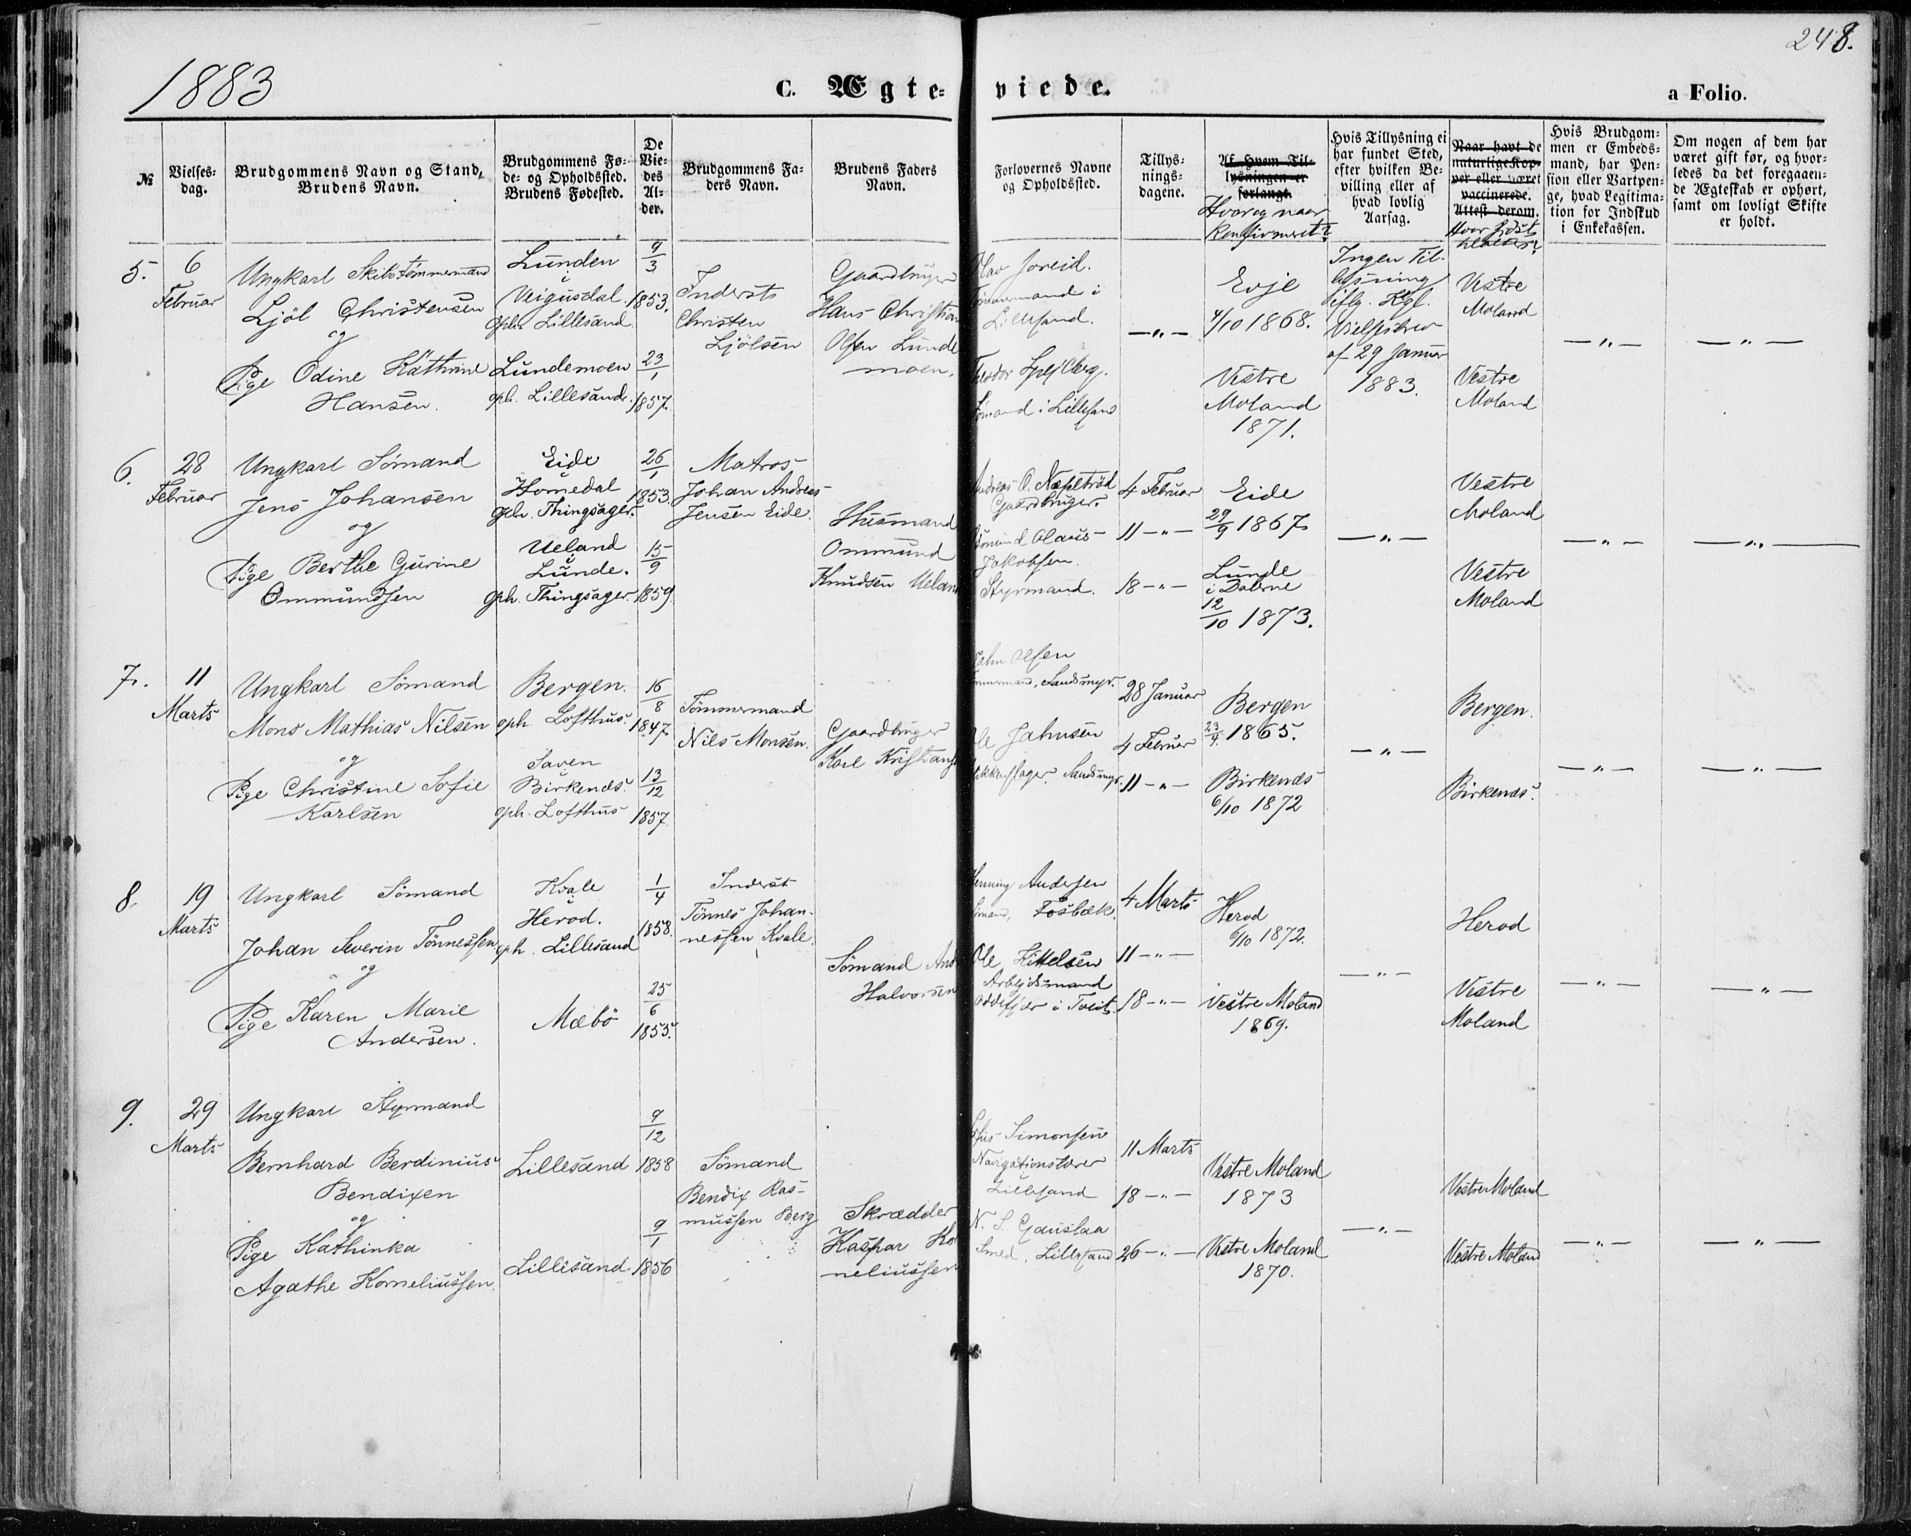 1883
C. Ægte-
viede.
a Folio.
248.
№
Vielses-
dag.
Brudgommens Navn og Stand,
Brudens Navn.
Brudgommens Fø-
de- og Opholdssted.
Brudens Fødested.
De
Vie-
des
Al-
der.
Brudgommens Fa-
ders Navn.
Brudens Faders
Navn.
Forlovernes Navne
og Opholdssted.
Tillys-
nings-
dagene.
Af Hvem Til-
lysningen er
forlangt.
Hvor og naar
Konfirmeret?
Hvis Tillysning ei
har fundet Sted,
efter hvilken Be-
villing eller af
hvad lovlig
Aarsag.
Naar havt de
naturlige Kop-
per eller været
vaccinerede.
Attest derom.
Hvor sidst
Hvis Brudgom-
men er Embeds-
mand, har Pen-
sion eller Vartpen-
ge, hvad Legitima-
tion for Indskud
i Enkekassen.
Om nogen af dem har
været gift før, og hvor-
ledes da det foregaaen-
de Ægteskab er ophørt,
samt om lovligt Skifte
er holdt.
5.
6
Februar
Ungkarl Skibstömmermand
Ljöl Christensen
og
Pige Odine Kathrine
Hansen.
Lunden
i
Veigusdal
oph. Lillesand.
Lundemoen
oph. Lillesand.
9/3
1853.
23/1
1857.
Inderst
Christen
Ljölsen
Gaardbruger
Hans Christian
Olsen Lunde
moen.
Olav Joreid.
Tömmermand i
Lillesand.
Sömand i Lillesand
—„—
Evje
4/10 1868.
Vestre
Moland
1871.
Ingen Til-
lysning
iflg. Kgl.
Vielsesbrev
af 29 Januar
1883.
Vestre
Moland
Vestre
Moland
—„—
—„—
6.
28
Februar
Ungkarl Sömand
Jens Johansen
og
Pige Berthe Gurine
Ommundsen
Eide
i
Homedal
oph. Thingsager.
Ueland
i
Lunde.
oph. Thingsager.
26/1
1853.
15/9
1859.
Matros
Johan Andreas
Jensen Eide.
Husmand
Ommund
Knudsen Ueland
Andreas O. Næpeltröd
Gaardbruger.
Olaus
Jakobsen.
Styrmand.
4 Februar
11 —„—
18 —„—
Eide
29/9 1867.
Lunde
i Dalerne
12/10 1873.
—„—
Vestre
Moland
Vestre
Moland
—„—
—„—
7.
11
Marts
Ungkarl Sömand
Mons Mathias Nilsen
og
Pige Christine Sofie
Karlsen
Bergen.
oph. Lofthus.
Saven
i
Birkenæs.
oph. Lofthus
16/8
1847.
13/12
1857.
Tömmermand
Nils Monsen.
Gaardbruger
Karl Kristians
Jahn Olsen
Tömmermand, Sandsmyr.
Ole Jahnsen
Blikkenslager. Sandsmyr.
28 Januar
4 Februar
11 —„—
Bergen
23/4 1865.
Birkenæs
6/10 1872
—„—
Bergen.
Birkenæs.
—„—
—„—
8.
19
Marts
Ungkarl Sömand
Johan Severin Tönnessen
og
Pige Karen Marie
Andersen.
Kvale
i
Herod.
oph. Lillesand
Mæbö
1/4
1858.
25/6
1855.
Inderst
Tönnes Johan-
nessen Kvale.
Sömand And
Halvorsen
Henning Andersen
Sömand, Fosbæk.
Ole Kittelsen
Arbeidsmand
Oddefjær i Tveit.
4 Marts
11 —„—
18 —„—
Herod
6/10 1872.
Vestre Moland
1869.
—„—
Herod
Vestre
Moland
—„—
—„—
9.
29
Marts
Ungkarl Styrmand
Bernhard Berdinius
Bendixen
og
Pige Kathinka
Agathe Korneliussen.
Lillesand
Lillesand.
9/12
1858
9/1
1856
Sömand
Bendix Ras-
mussen Berg
Skrædder
Kaspar Kor
neliussen
Simonsen
Navigationslærer
Lillesand
N. S. Gauslaa
Smed, Lillesand
11 Marts
18 —„—
26 —„—
Vestre Moland
1873
Vestre Moland
1870.
—„—
Vestre Moland
Vestre Moland
—„—
—„—